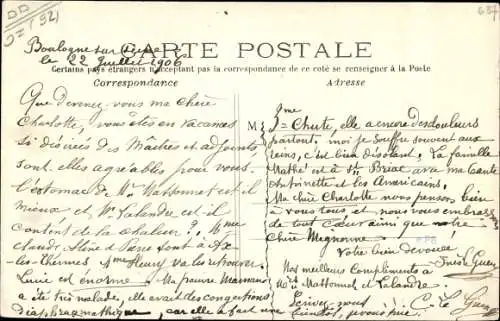 DD
J= (92)
637
Boulogne sur Seine
le 22 Juillet 1906
CARTE POSTALE
Certains pays étrangers n'acceptant pas la correspondance de ce coté se renseigner à la Poste.
Correspondance
Adresse
Que devenez-vous ma Chère
Charlotte, vous êtes en vacances
si désirées des Maîtres et adjoints,
sont elles agréables pour vous
l'estomac de Mr Massonnat est il
mieux et Mr Lalandre est-il
content de la Chaleur ?. Mme
Claudt Aline et Pierre sont à Ax-
-les-Thermes Mme Fleury va les trouver.
Lucie est énorme Ma pauvre Maman
a été très malade, elle avait des congestions
diaphragmathique, car elle a fait une
M
2ème Chute, elle a encore des douleurs
partout. moi je souffre souvent aux
reins, c'est bien désolant. La famille
Mathé est à St Briac avec ma tante
Antoinette et les Américains.
Ma chère Charlotte nous pensons bien
à vous tous et nous vous embrass
de tout Cœur ainsi que notre
Chère Mignonne.
Votre bien dévouée
Nos meilleurs Compliments à
Mrs Massonnat et Lalandre.
Ecrivez-nous
bientôt, je vous prie.